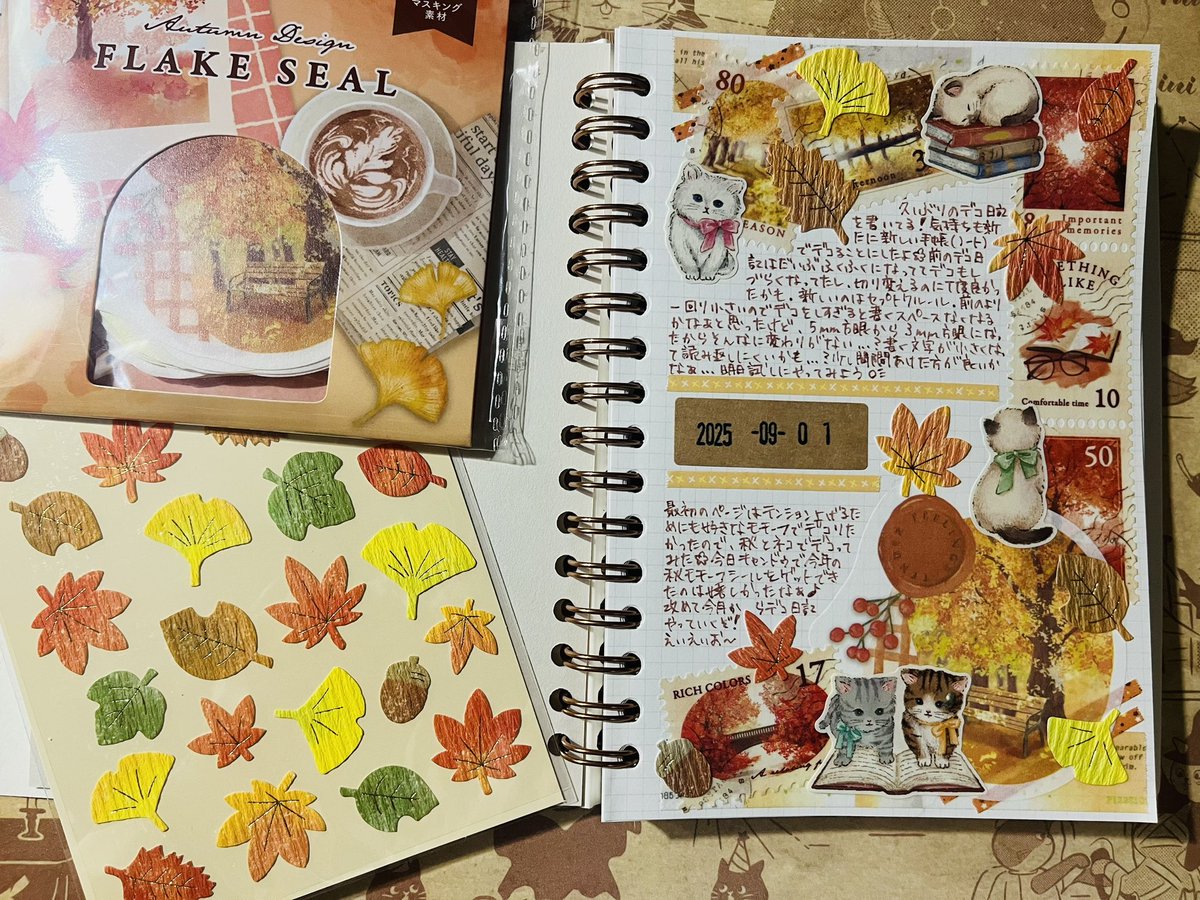 マスキング
素材
Autumn Design
FLAKE SEAL
start
iful day
TOPICS
in the
all his
80
SEASON
3
ernoon
9 Important
memories
ETHING
LIKE
Comfortable time 10
50
久しぶりのデコ日記
を書いてる!気持ちも新
たに新しい手帳(ノート)
でデコることにしたよ 前のデコ日
記はだいぶふくふくになっててデコもし
づらくなってたし、切り変えるのにて
たかも。新しいのはセプトクルール。前のより
一回り小さいのでデコをしすぎると書くスペースなくなる
かなぁと思ったけど、5mm方眼から3mm方眼にな、
たからそんなに変わりがない…?書く文字が小さくな、
て読み返しにくいかも…?少し間開あけた方が良いか
なぁ…明日試しにやってみよう
2025 -09- 0 1
最初のページはテンション上げるた
めにも好きなモチーフでデコりた
かったので、秋とネコでデコって
みた 今日キャンドゥで今年の
秋モチーフシールをゲットでき
たのは嬉しかったなぁ♪
改めて今月からデコ日記
やっていくぞ!
えいえいお〜
TENDER FEELINGS
RICH COLORS 17